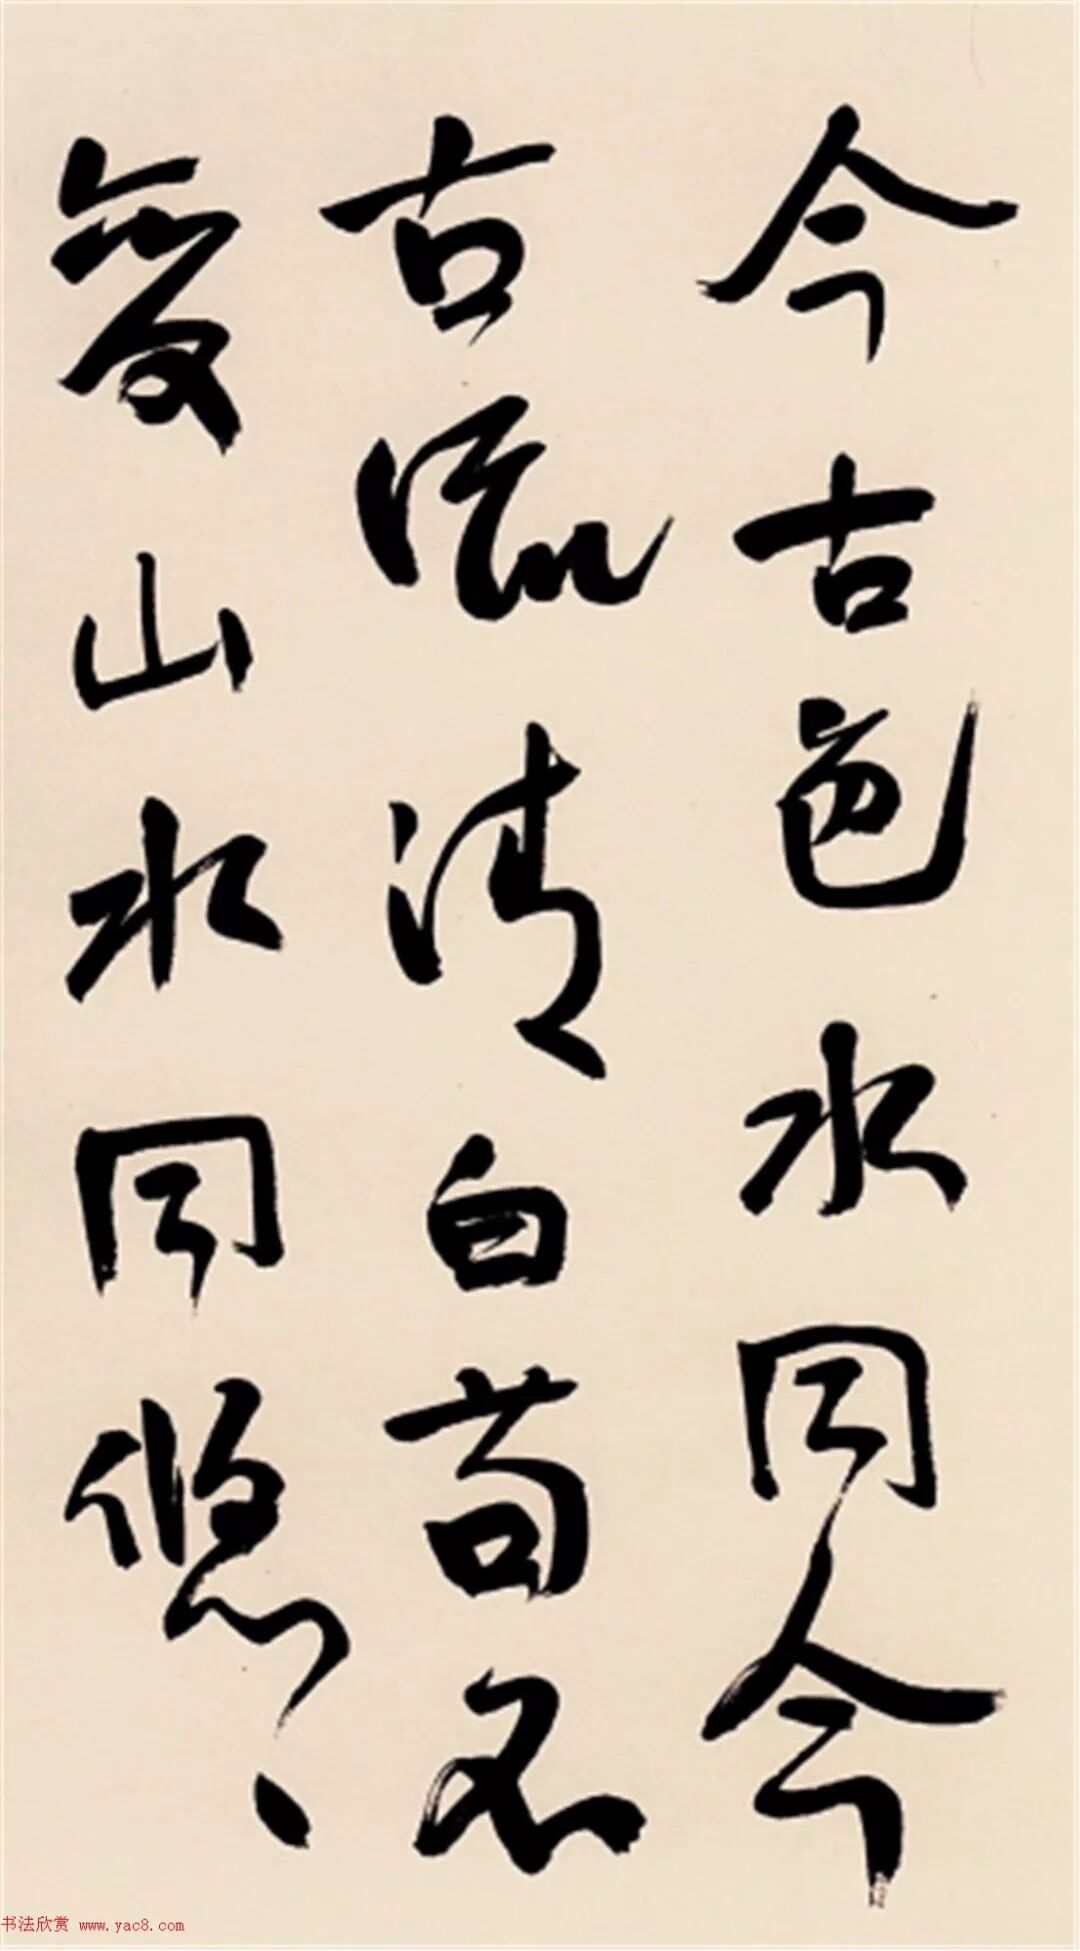 今古色水同今
古流清白苟不
变山水同悠〻
书法欣赏 www.yac8.com